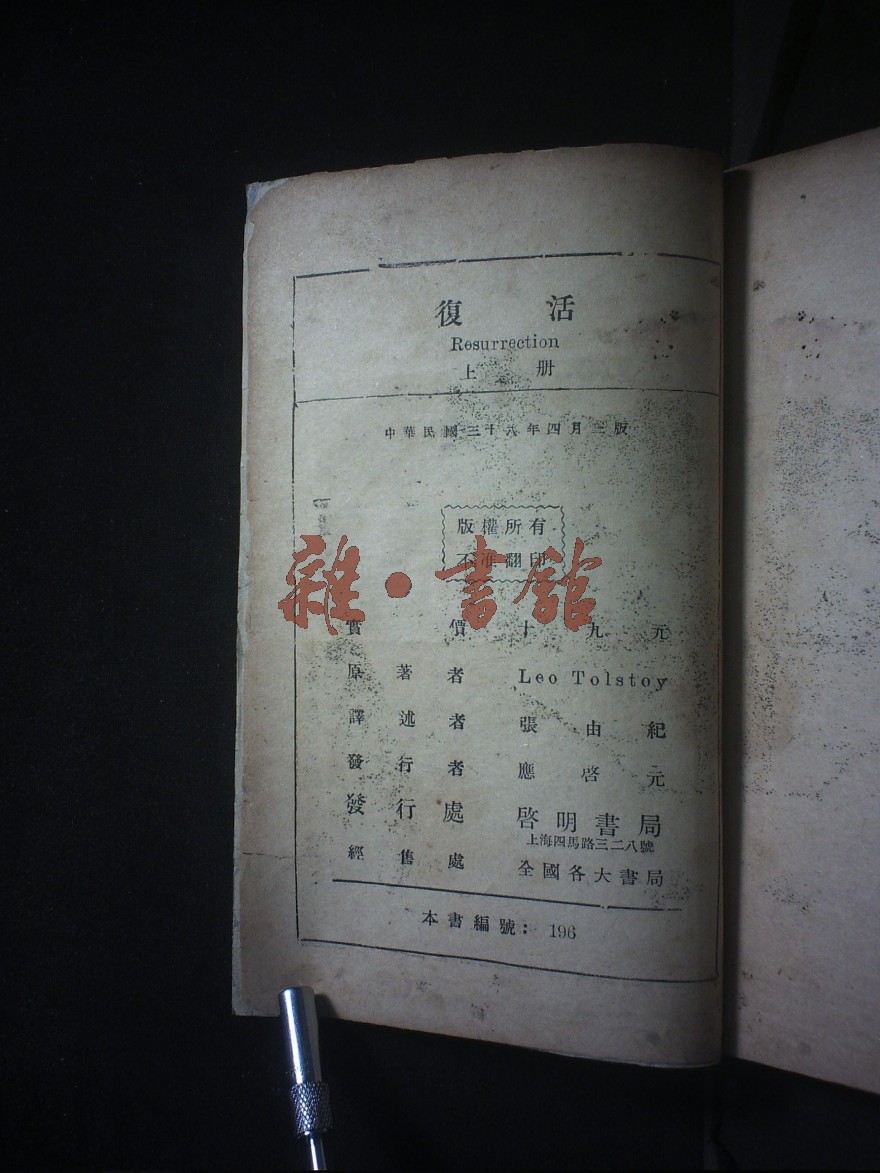 復活
Resurrection
上册
中華民國三十八年四月三版
版權所有
不准翻印
雜·書館
實價十九元
原著者 Leo Tolstoy
譯述者 張由紀
發行者 應啓元
發行處 啓明書局
上海四馬路三二八號
經售處 全國各大書局
本書編號：196